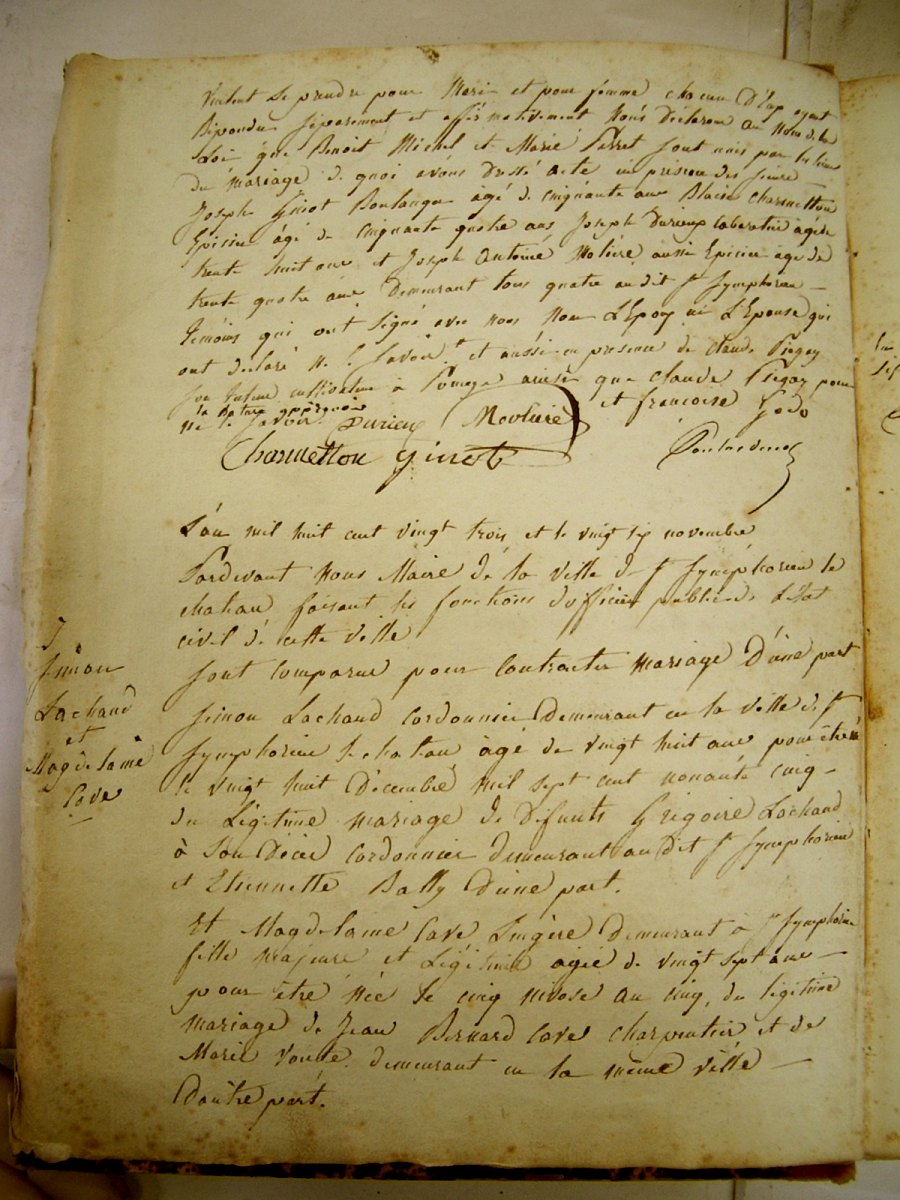 veulent se prendre pour Mari et pour femme chacun D'Eux ayant
Répondu séparement et affirmativement Nous Déclarons au Nom de la
Loi que Benoit Michel et Marie Perret sont unis par les liens
Du mariage de quoi avons Dressé acte en présence des sieurs
Joseph Ginot Boulanger âgé de cinquante ans Blaise Charmetton
Epicier âgé de cinquante quatre ans Joseph Durieux âgé de
trente huit ans et Joseph Antoine aussi Epicier âgé de
trente quatre ans Demeurant tous quatre au dit St Symphorien
Témoins qui ont signé avec nous Non L'Epoux ni L'Epouse qui
ont declaré ne savoir et aussi en presence de Claude
cultivateur à ainsi que Claude pour
ne le savoir Durieu et francoise
Charmetton Ginot
L'an mil huit cent vingt trois et le vingt six novembre
Pardevant Nous Maire de la ville de St Symphorien le
chateau faisant les fonctions d'officier public de L'Etat
civil de cette ville
sont comparus pour Contracter mariage D'une part
Simon Lachaud Cordonnier Demeurant en la ville de St
Symphorien le chateau âgé de vingt huit ans pour être né
le vingt huit Décembre mil sept cent nonante cinq
du Légitime mariage de Défunts Grégoire Lachaud
à son Décès Cordonnier demeurant au Dit St Symphorien
et Etiennette Bally D'une part.
Simon
Lachaud
et
Magdelaine
Cave
Et Magdelaine Cave Lingère Demeurant à St Symphorien
fille majeure et Légitime agée de vingt sept ans
pour être Née le cinq nivose an cinq, du légitime
mariage de Jean Bernard Cave charpentier et de
Marie demeurant en la même ville
D'autre part.